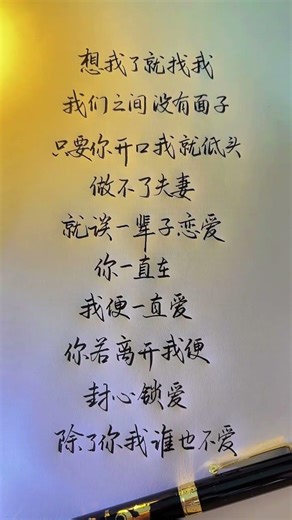 想我了就找我
我们之间没有面子
只要你开口我就低头
做不了夫妻
就谈一辈子恋爱
你一直在
我便一直爱
你若离开我便
封心锁爱
除了你我谁也不爱